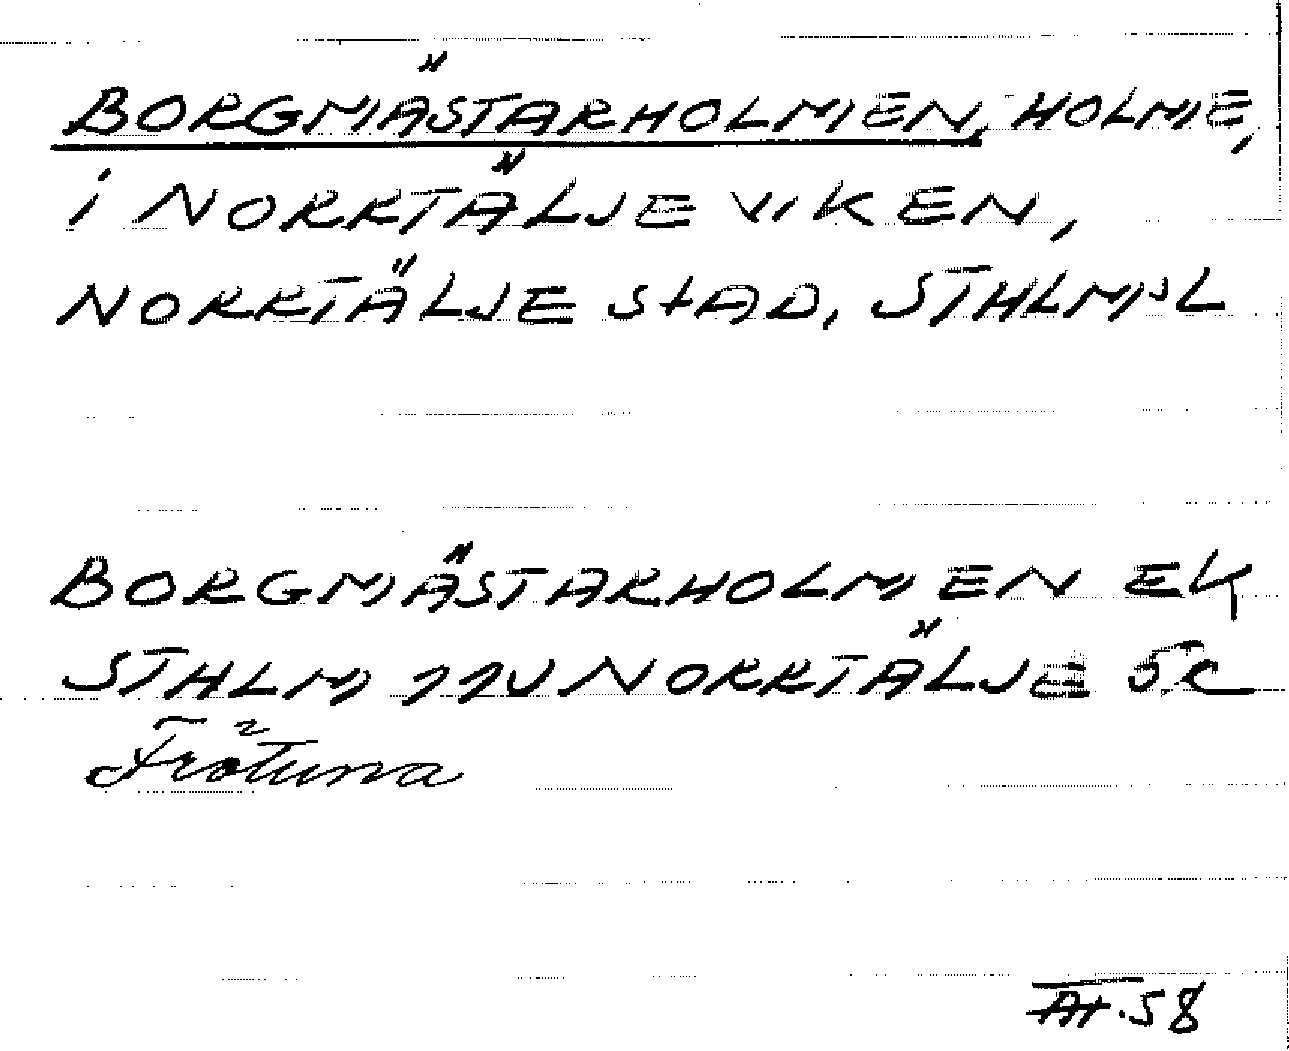 BORGMÄSTARHOLMEN, HOLME,
i NORRTÄLJE VIKEN,
NORRTÄLJE STAD, STHLMSL
BORGMÄSTARHOLMEN EK
STHLM 11V NORRTÄLJE 5c
Frötuna
58